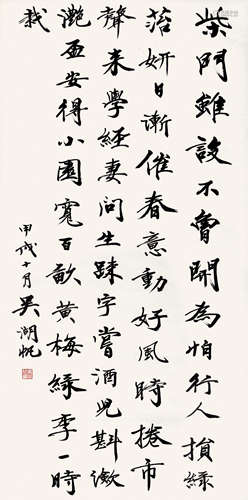 柴門雖設不曾開為怕行人損綠
苔妍日漸催春意動好風時捲市
聲来學經妻問生踈字嘗酒兒斟瀲
灔盃安得小園寬百畝黃梅綠李一時
栽
甲戌十月吳湖帆